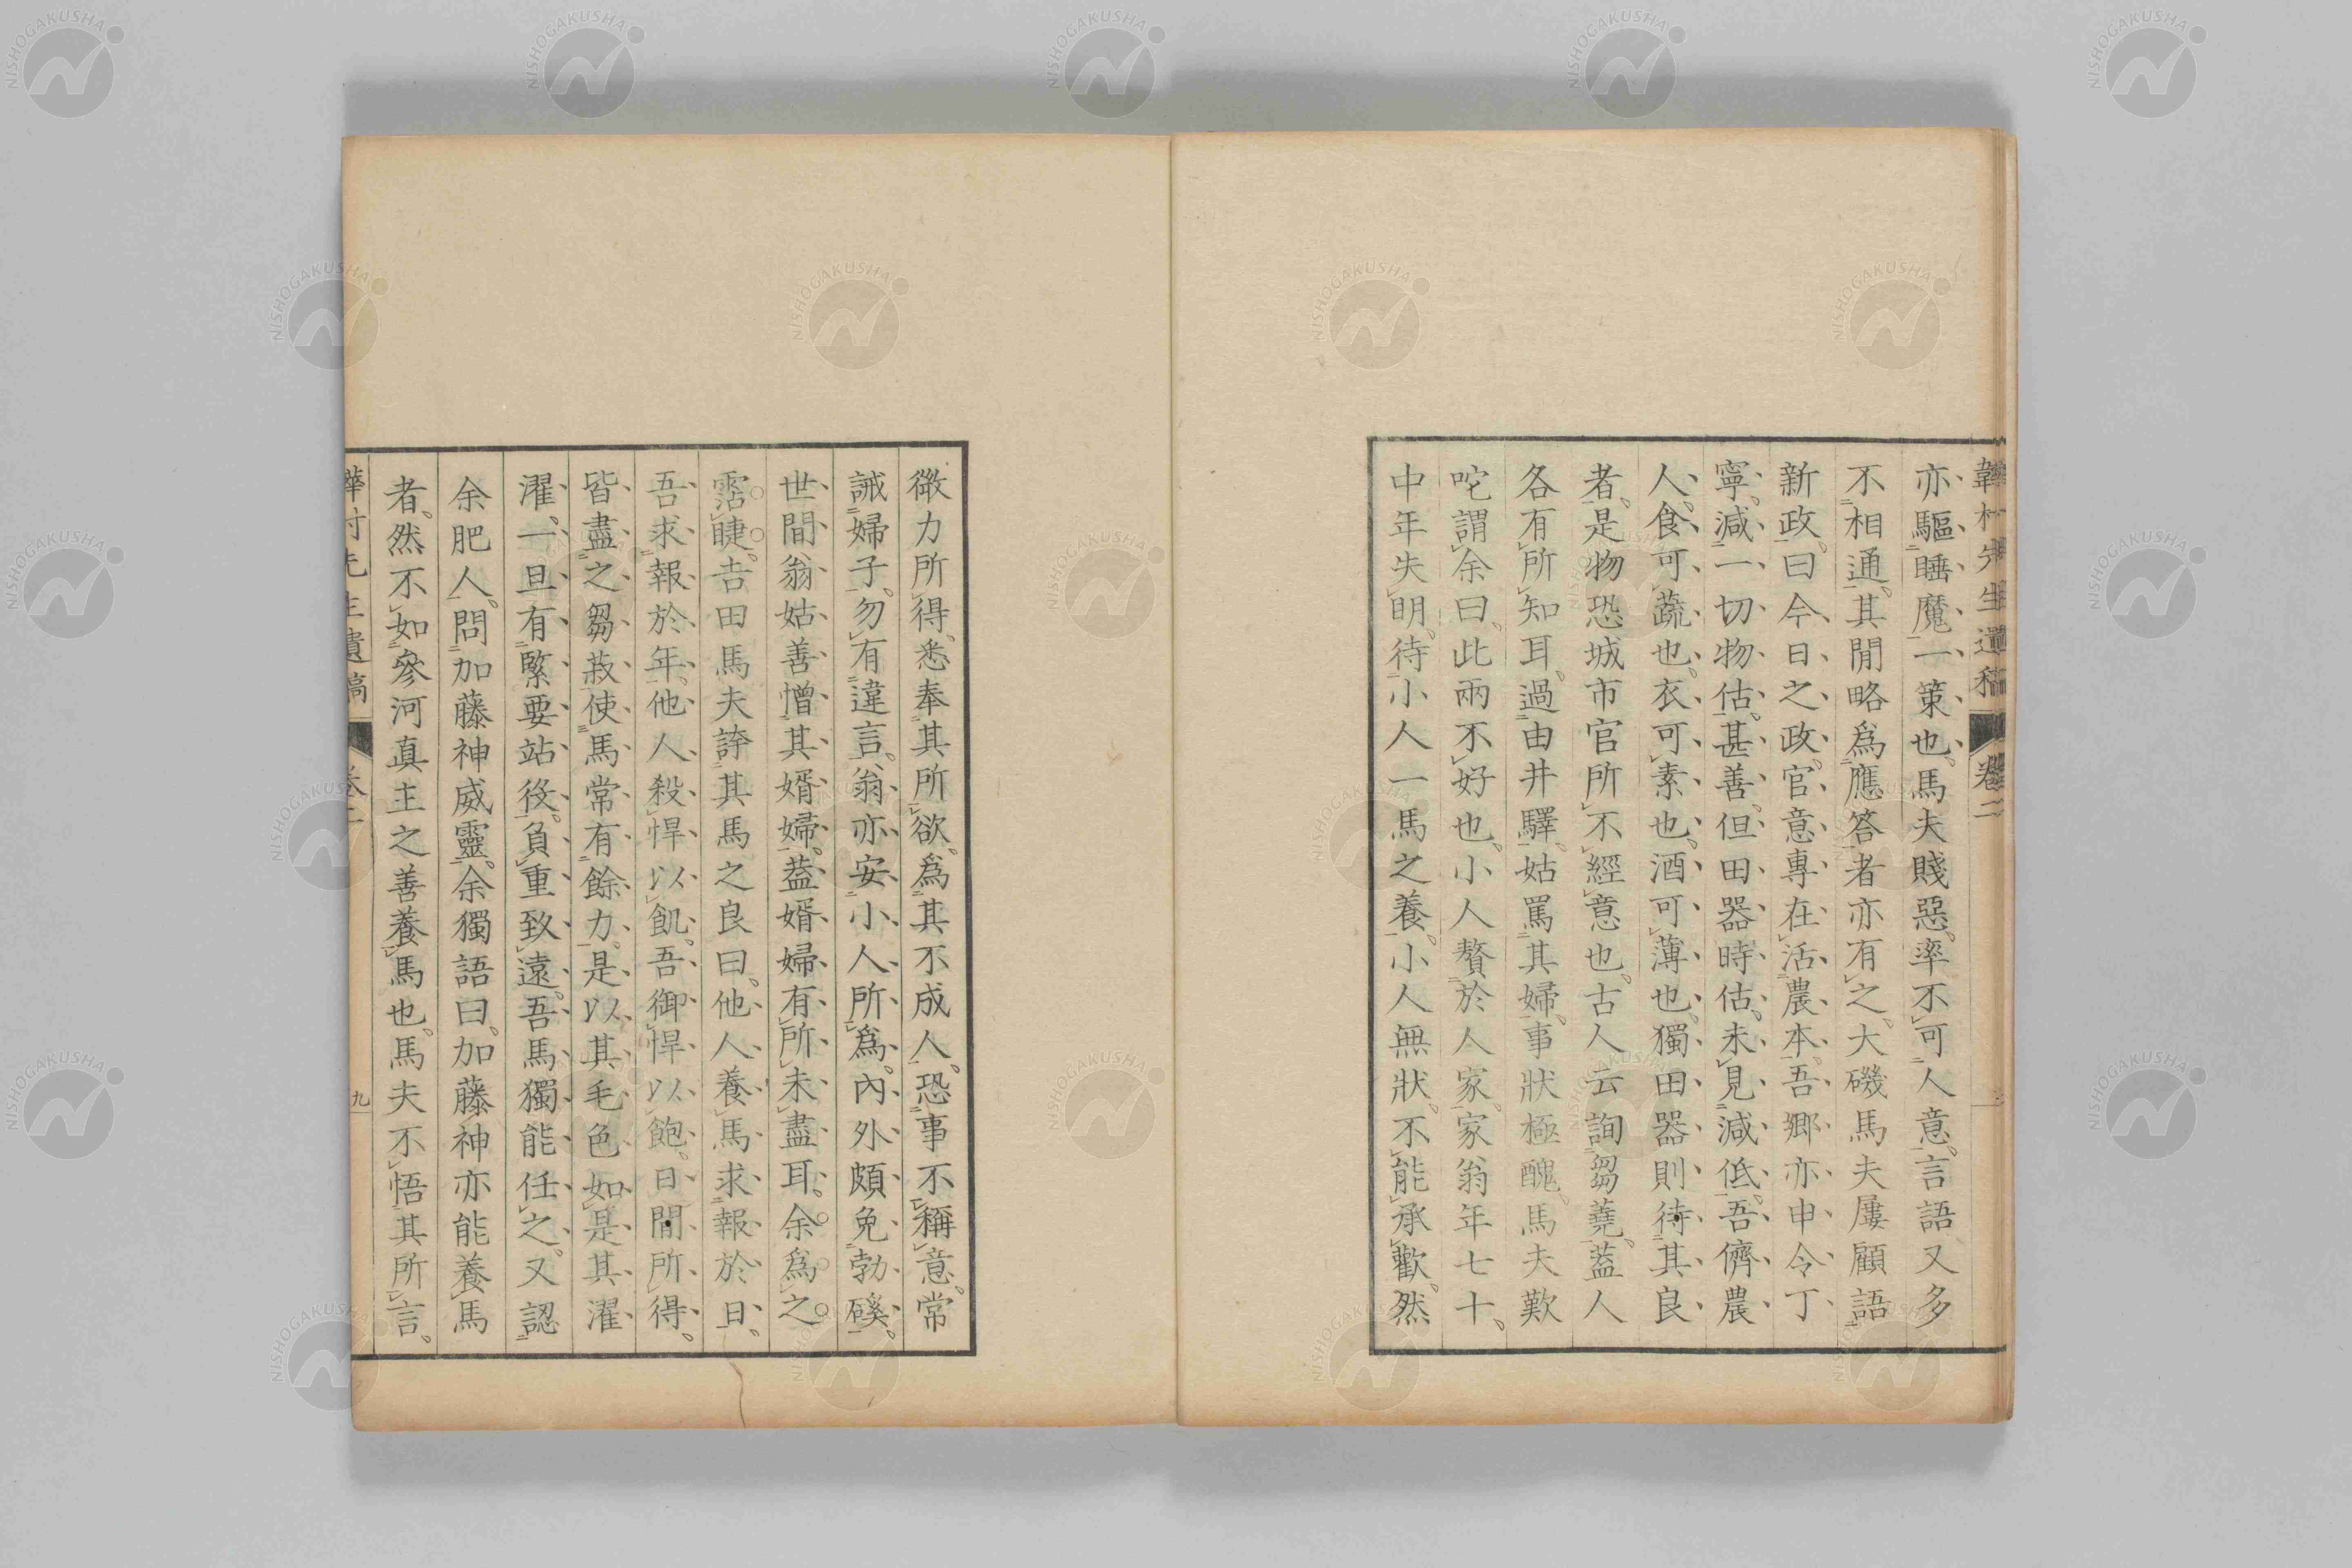 韡村先生遺稿 卷二
亦驅睡魔一策也。馬夫賤惡。率不可人意。言語又多
不相通。其閒略爲應答者亦有之。大磯馬夫屢顧語
新政。曰今日之政。官意專在活農本。吾鄉亦申令丁
寧。減一切物估。甚善。但田器時估。未見減低。吾儕農
人。食可蔬也。衣可素也。酒可薄也。獨田器則待其良
者。是物恐城市官所不經意也。古人云詢芻蕘。葢人
各有所知耳。過由井驛。姑罵其婦。事狀極醜。馬夫歎
咜謂余曰。此兩不好也。小人贅於人家。家翁年七十。
中年失明。待小人一馬之養。小人無狀。不能承歡。然
微力所得。悉奉其所欲。爲其不成人。恐事不稱意。常
誡婦子。勿有違言。翁亦安小人所爲。內外頗免勃磎。
世間翁姑善憎其婿婦。葢婿婦有所未盡耳。余爲之
霑睫。吉田馬夫誇其馬之良曰。他人養馬。求報於日。
吾求報於年。他人殺悍以飢。吾御悍以飽。日閒所得。
皆盡之芻菽。使馬常有餘力。是以其毛色如是其濯
濯。一旦有緊要站役。負重致遠。吾馬獨能任之。又認
余肥人。問加藤神威靈。余獨語曰。加藤神亦能養馬
者。然不如參河真主之善養馬也。馬夫不悟其所言。
韡村先生遺稿 卷二 九